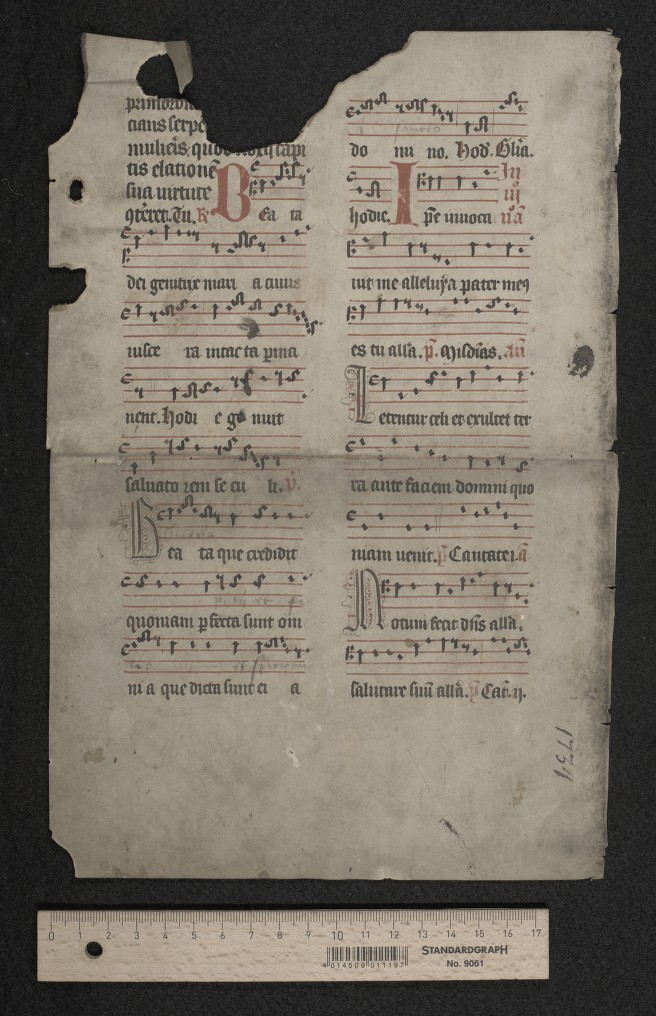 primord
cians serpe
mulieris quod
tis elatione
sua virtute
9teret. Tu. R. Bea ta
dei genitrix mari a cuius
visce ra intacta perma
nent. Hodi e ge nuit
saluato rem se cu li. V.
Bea ta que credidit
quoniam perfecta sunt om
ni a que dicta sunt ei a
do mi no. Hod. Glia.
hodie. Ipse inuoca
uit me alleluya pater meus
es tu alla. p. Misdias. an
Letentur celi et exultet ter
ra ante faciem domini quo
niam uenit. p. Cantate i. a
Notum fecit dns alla.
salutare suu alla. p. Cat. ij.
1734
0 1 2 3 4 5 6 7 8 9 10 11 12 13 14 15 16 17
4 014509 011197
STANDARDGRAPH
No. 9061